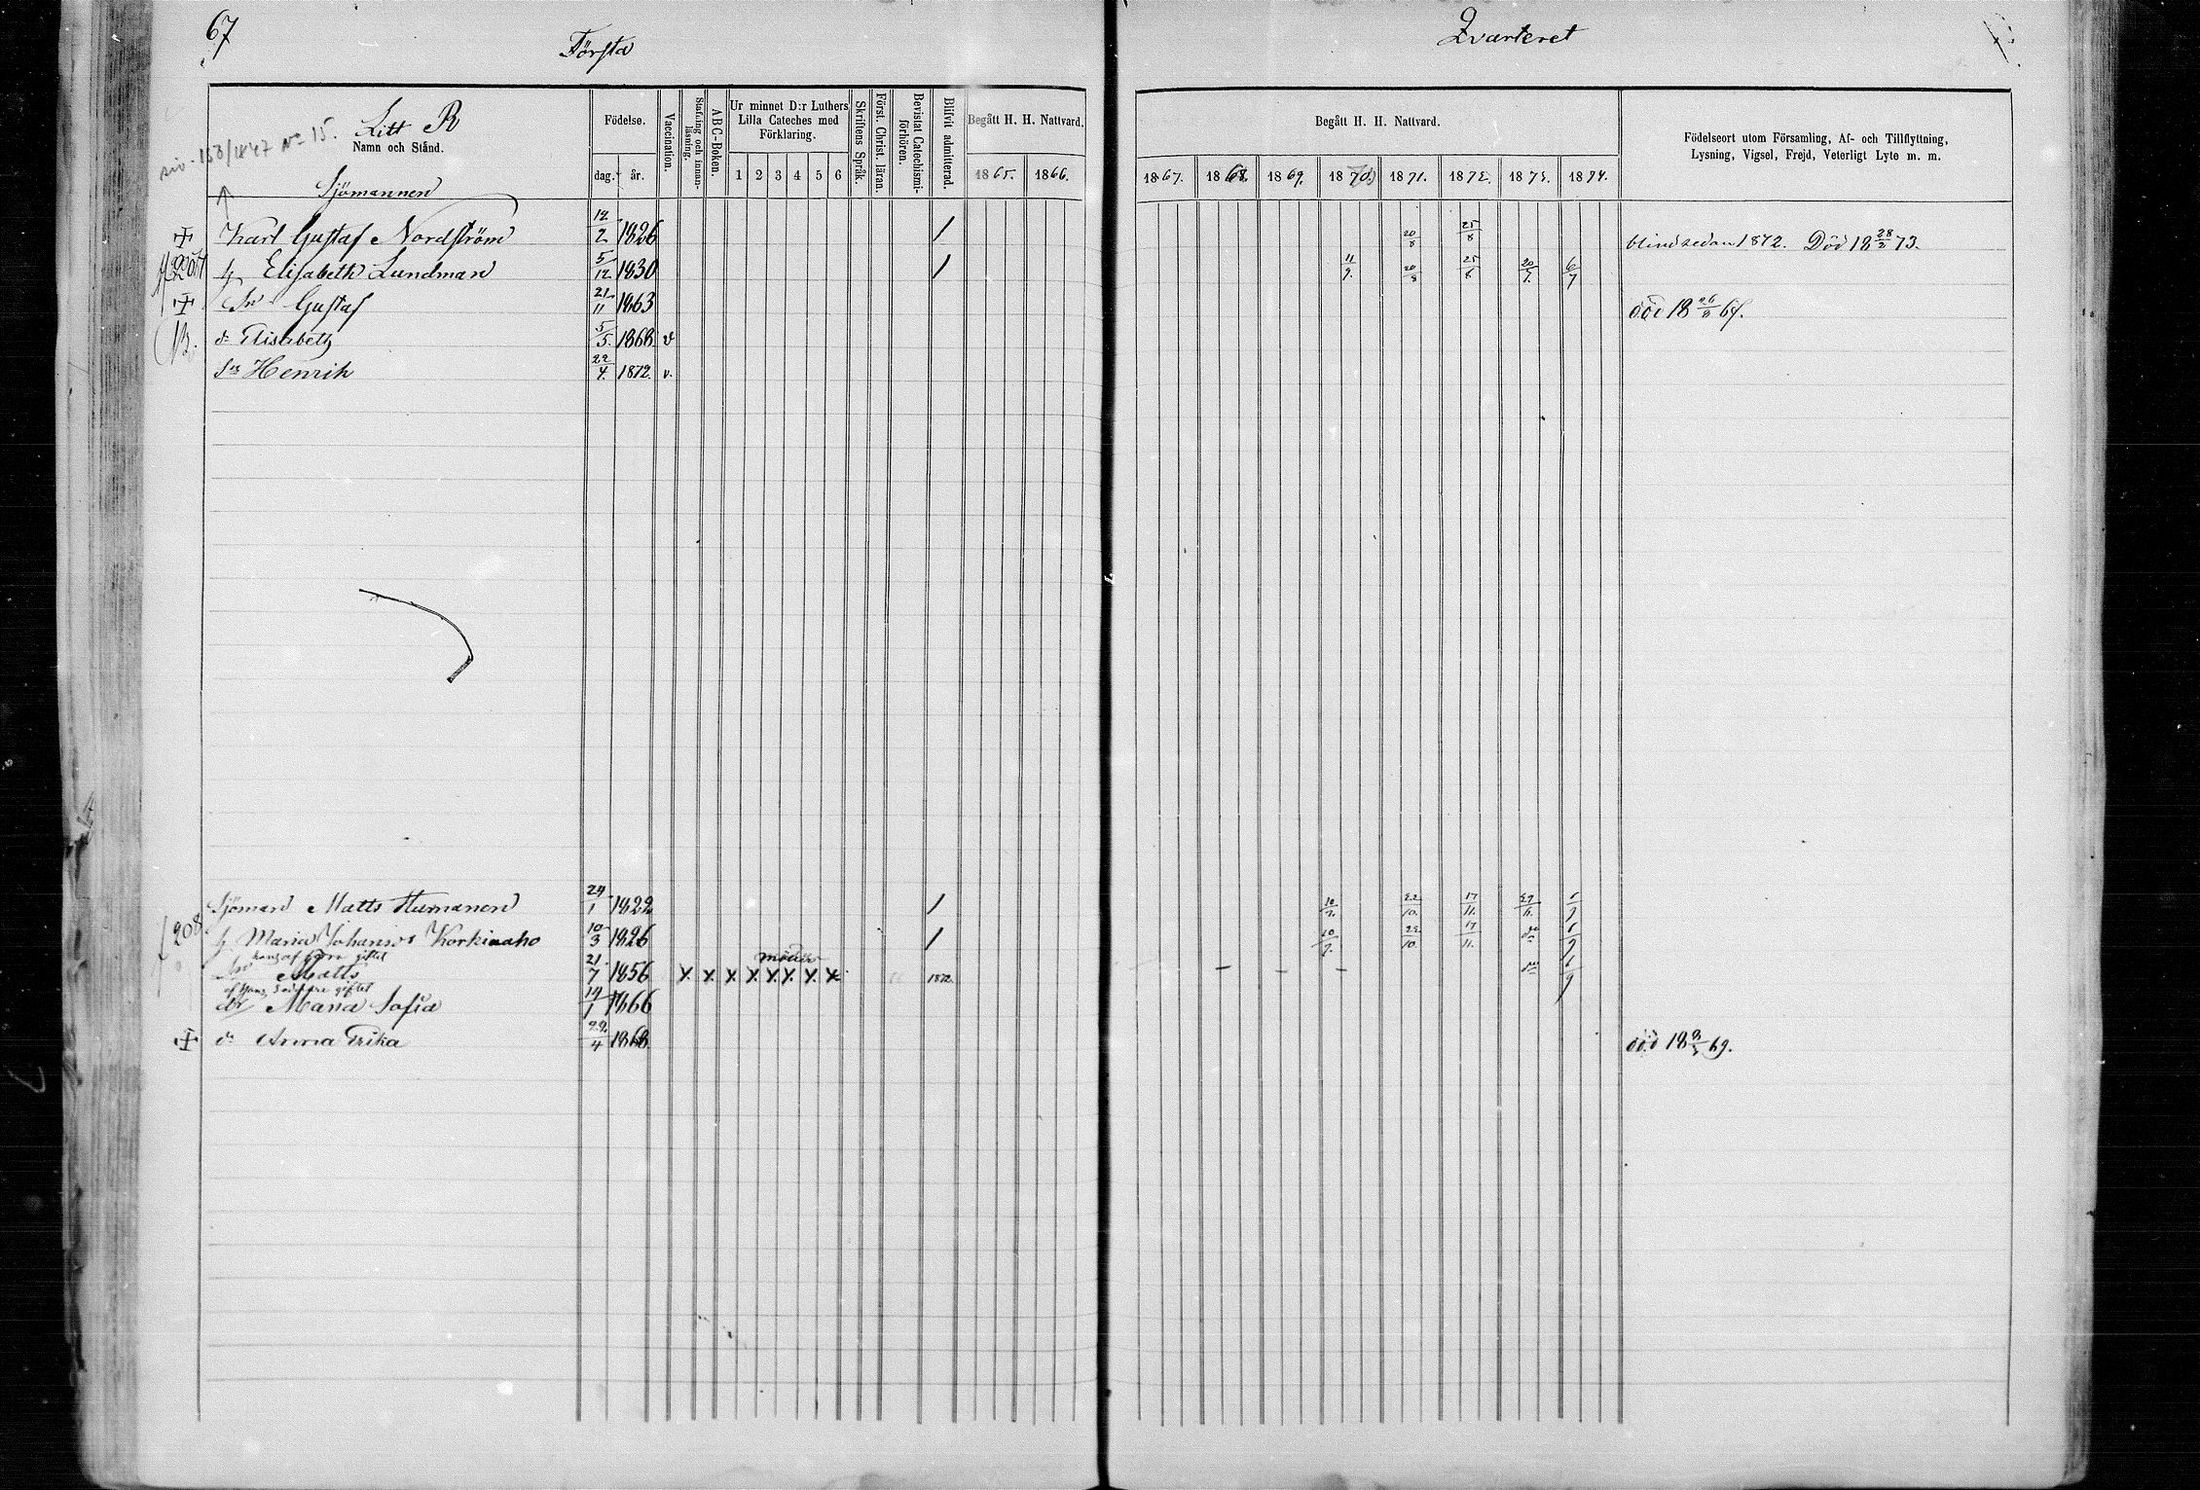 67
Första
Qvarteret
Litt R
siv. 158/1847 No 15.
Namn och Stånd.
Födelse.
dag.
år.
Vaccination.
Stafning och innanläsning.
ABC-Boken.
Ur minnet D:r Luthers Lilla Cateches med Förklaring.
1 2 3 4 5 6
Skriftens Språk.
Först. Christ. läran.
Bevistat Catechismiförhören.
Blifvit admitterad.
Begått H. H. Nattvard.
1865. 1866.
Begått H. H. Nattvard.
1867. 1868. 1869. 1870. 1871. 1872. 1873. 1874.
Födelseort utom Församling, Af- och Tillflyttning,
Lysning, Vigsel, Frejd, Veterligt Lyte m. m.
Sjömannen
Karl Gustaf Nordström 12/2 1826 / 20/8 25/8 blind sedan 1872. Död 18 28/3 73.
h Elisabeth Lundman 5/12 1830 / 11/9. 20/8 25/8 20/7. 6/7
Sn Gustaf 21/11 1863 död 18
dr Elisabeth 5/5. 1868 v
Sn Henrik 22/4. 1872. v.
Sjöman Matts 24/1 1822 / 10/7. 22/10. 17/11.
208
h Maria Johansdr Korkiaaho 10/3 1826 / 10/7. 22/10. 17/11.
Sn Matts 21/7 1856 x x x x x x x x 1872.
dr Maria Sofia 19/1 1866
dr Anna Erika 22/4 1868. död 18 69.